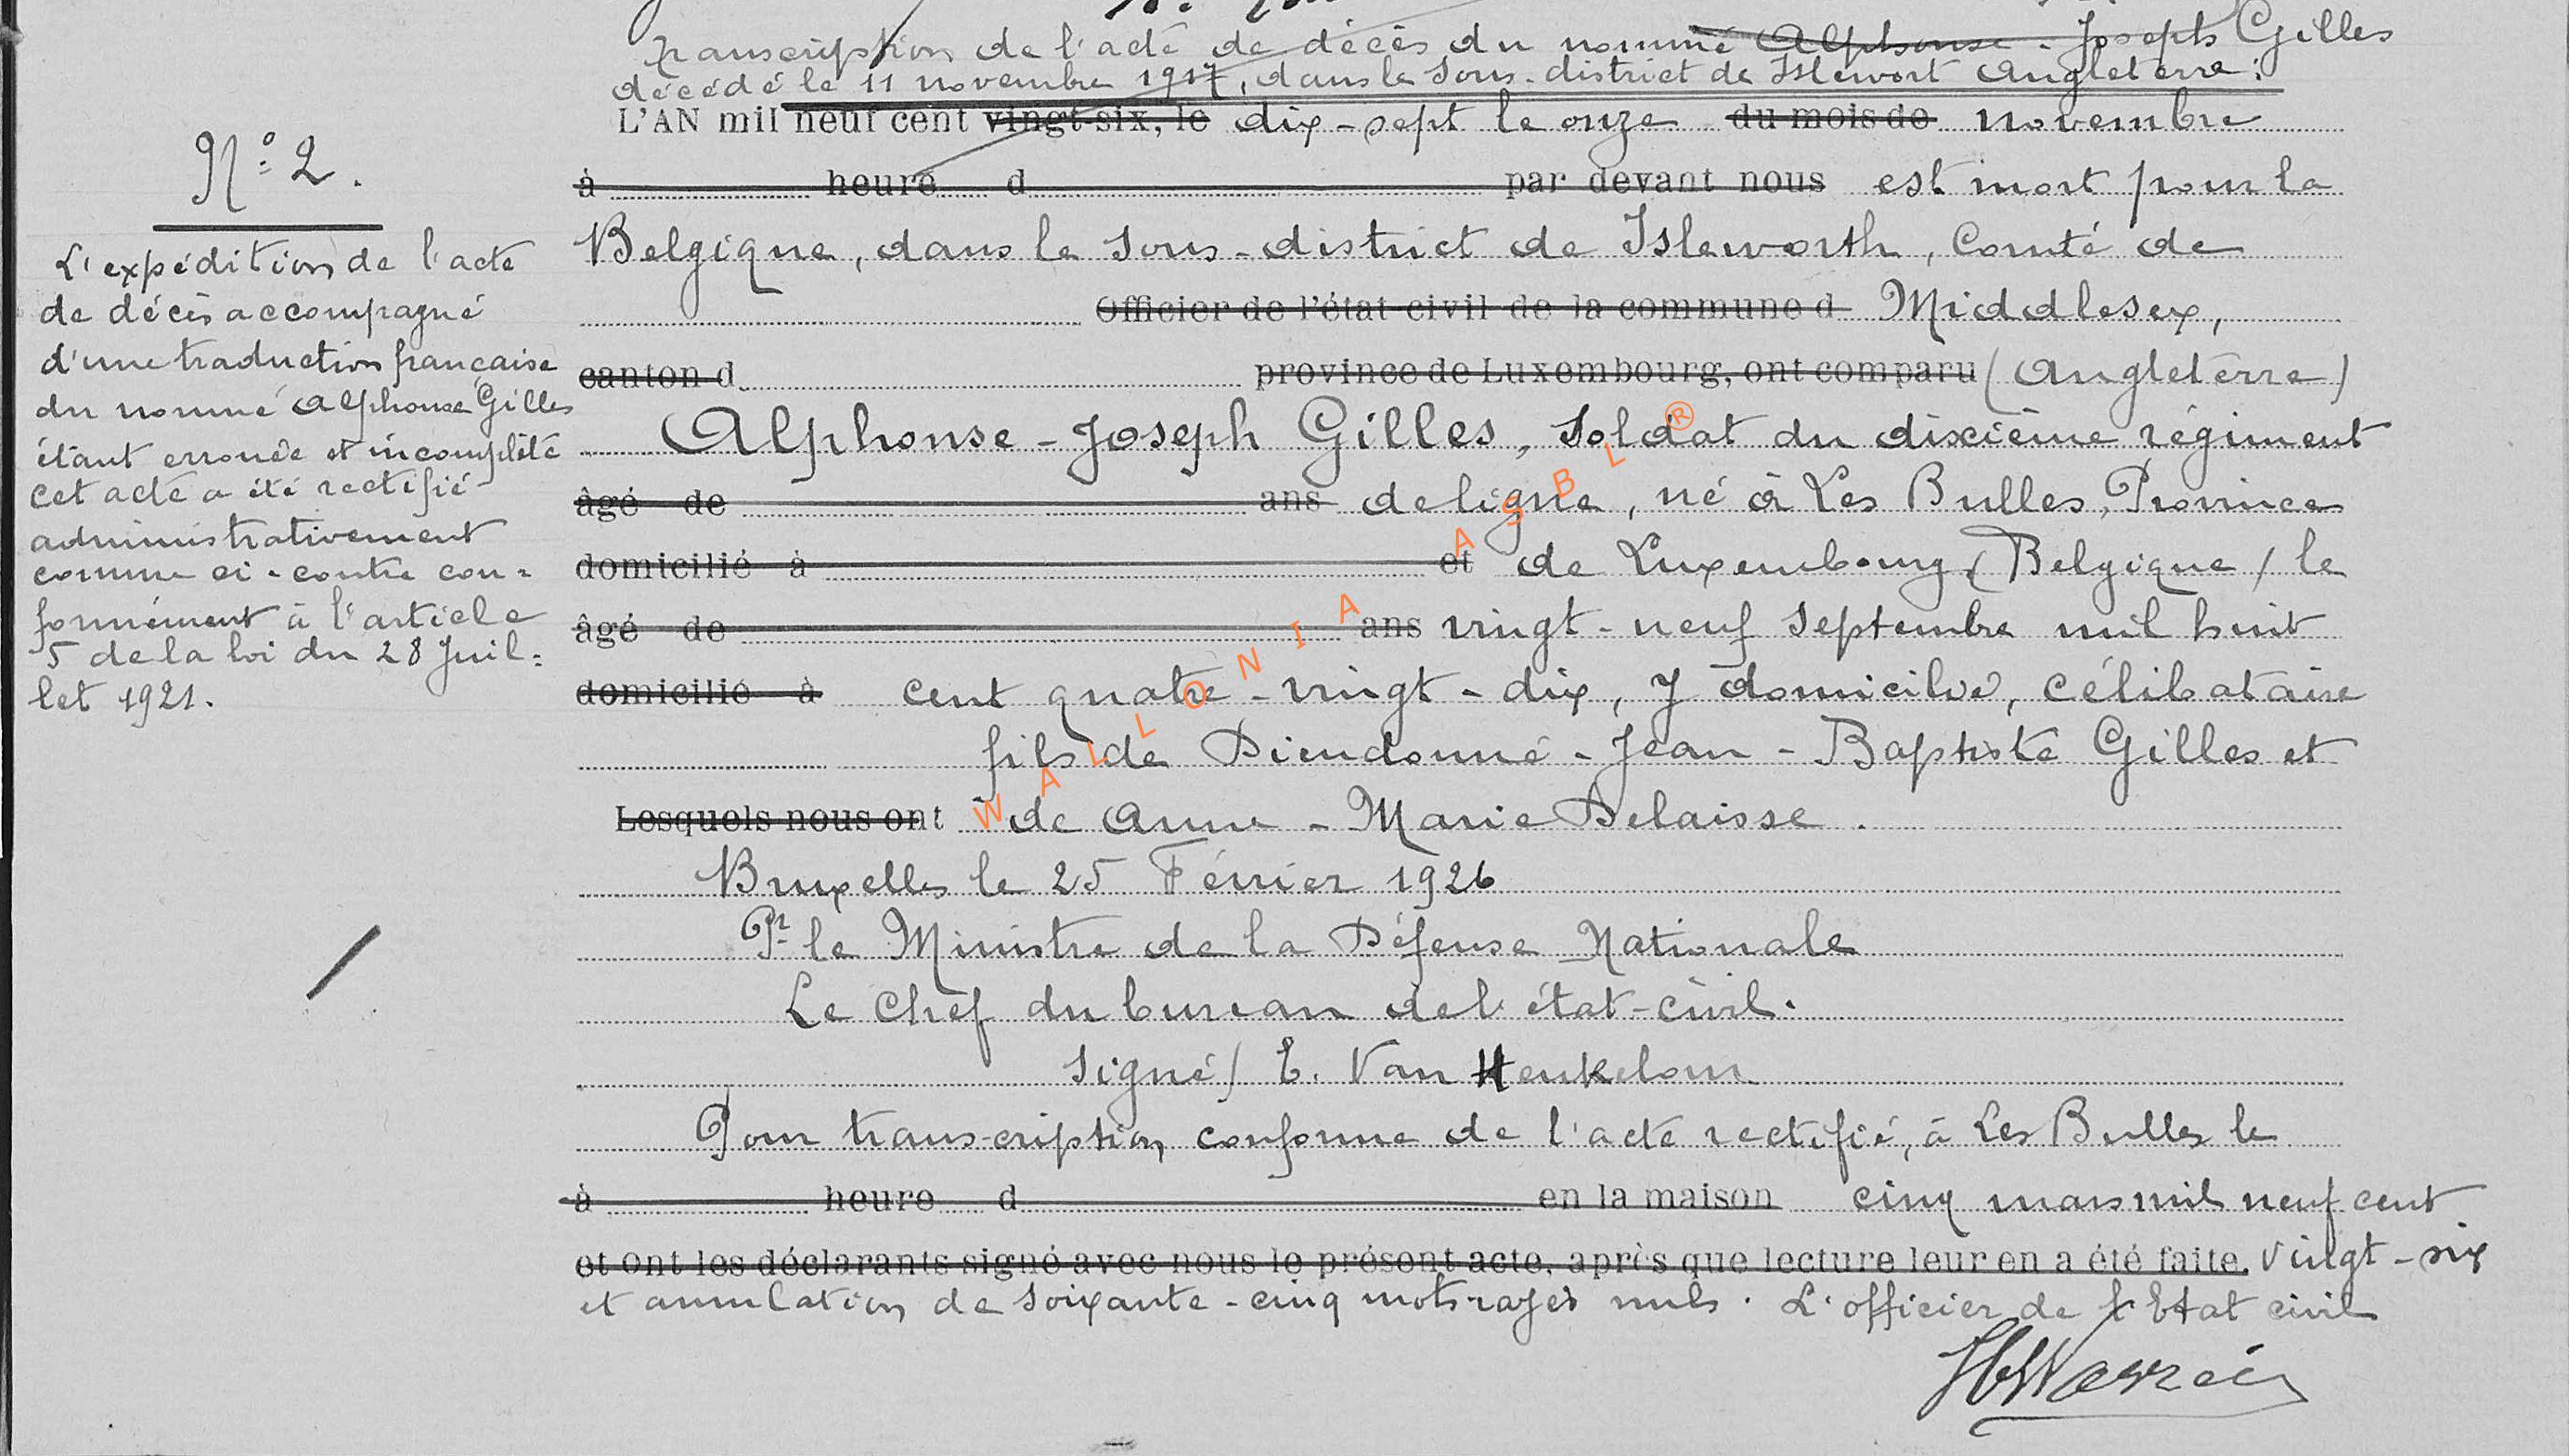 Transcription de l'acte de décès du nommé Alphonse - Joseph Gilles
décédé le 11 novembre 1917, dans le Sous-district de Islewort Angleterre.
N° 2.
L'expédition de l'acte
de décès accompagné
d'une traduction française
du nommé Alphonse Gilles
étant erronée et incomplète
cet acte a été rectifié
administrativement
comme ci-contre con=
formément à l'article
5 de la loi du 28 Juil=
let 1921.
L'AN mil neuf cent vingt-six, le dix-sept le onze du mois de novembre
à heure d par devant nous est mort pour la
Belgique, dans le Sous-district de Isleworth, Comté de
Officier de l'état civil de la commune d Middlesex,
canton d province de Luxembourg, ont comparu (Angleterre)
Alphonse - Joseph Gilles, Soldat du dixième régiment
âgé de ans de ligne, né à Les Bulles, Province
domicilié à et de Luxembourg (Belgique) le
âgé de ans vingt-neuf Septembre mil huit
domicilié à cent quatre-vingt-dix, y domicilié, célibataire
fils de Dieudonné - Jean - Baptiste Gilles et
Lesquels nous ont de Anne - Marie Delaisse.
Bruxelles le 25 Février 1926
Pr le Ministre de la Défense Nationale
Le Chef du bureau de l'état-civil.
Signé) E. Van Heukelom
Pour transcription conforme de l'acte rectifié, à Les Bulles le
à heure d en la maison cinq mars mil neuf cent
et ont les déclarants signé avec nous le présent acte, après que lecture leur en a été faite. vingt-six
et annulation de soixante-cinq mots rayés nuls. L'officier de l'Etat civil
WALLONIA ASBL ®